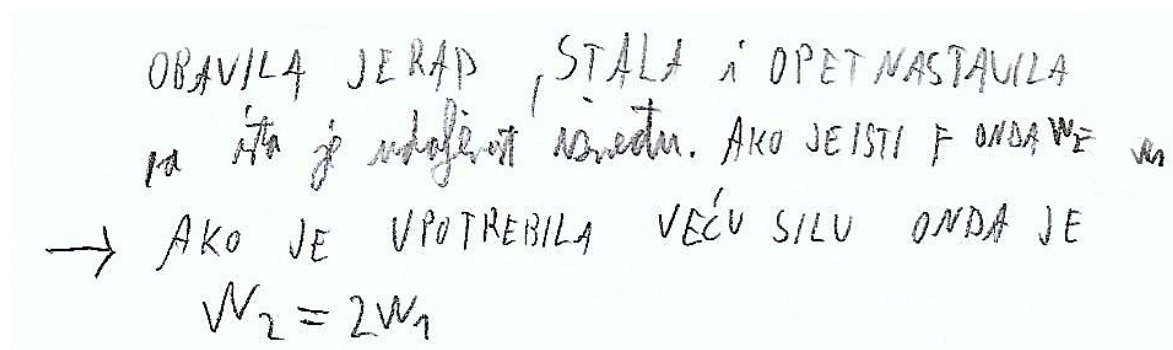 OBAVILA JE RAD, STALA i OPET NASTAVILA
pa ista je udaljenost između. AKO JE ISTI F ONDA W
→ AKO JE UPOTREBILA VEĆU SILU ONDA JE
W₂ = 2W₁